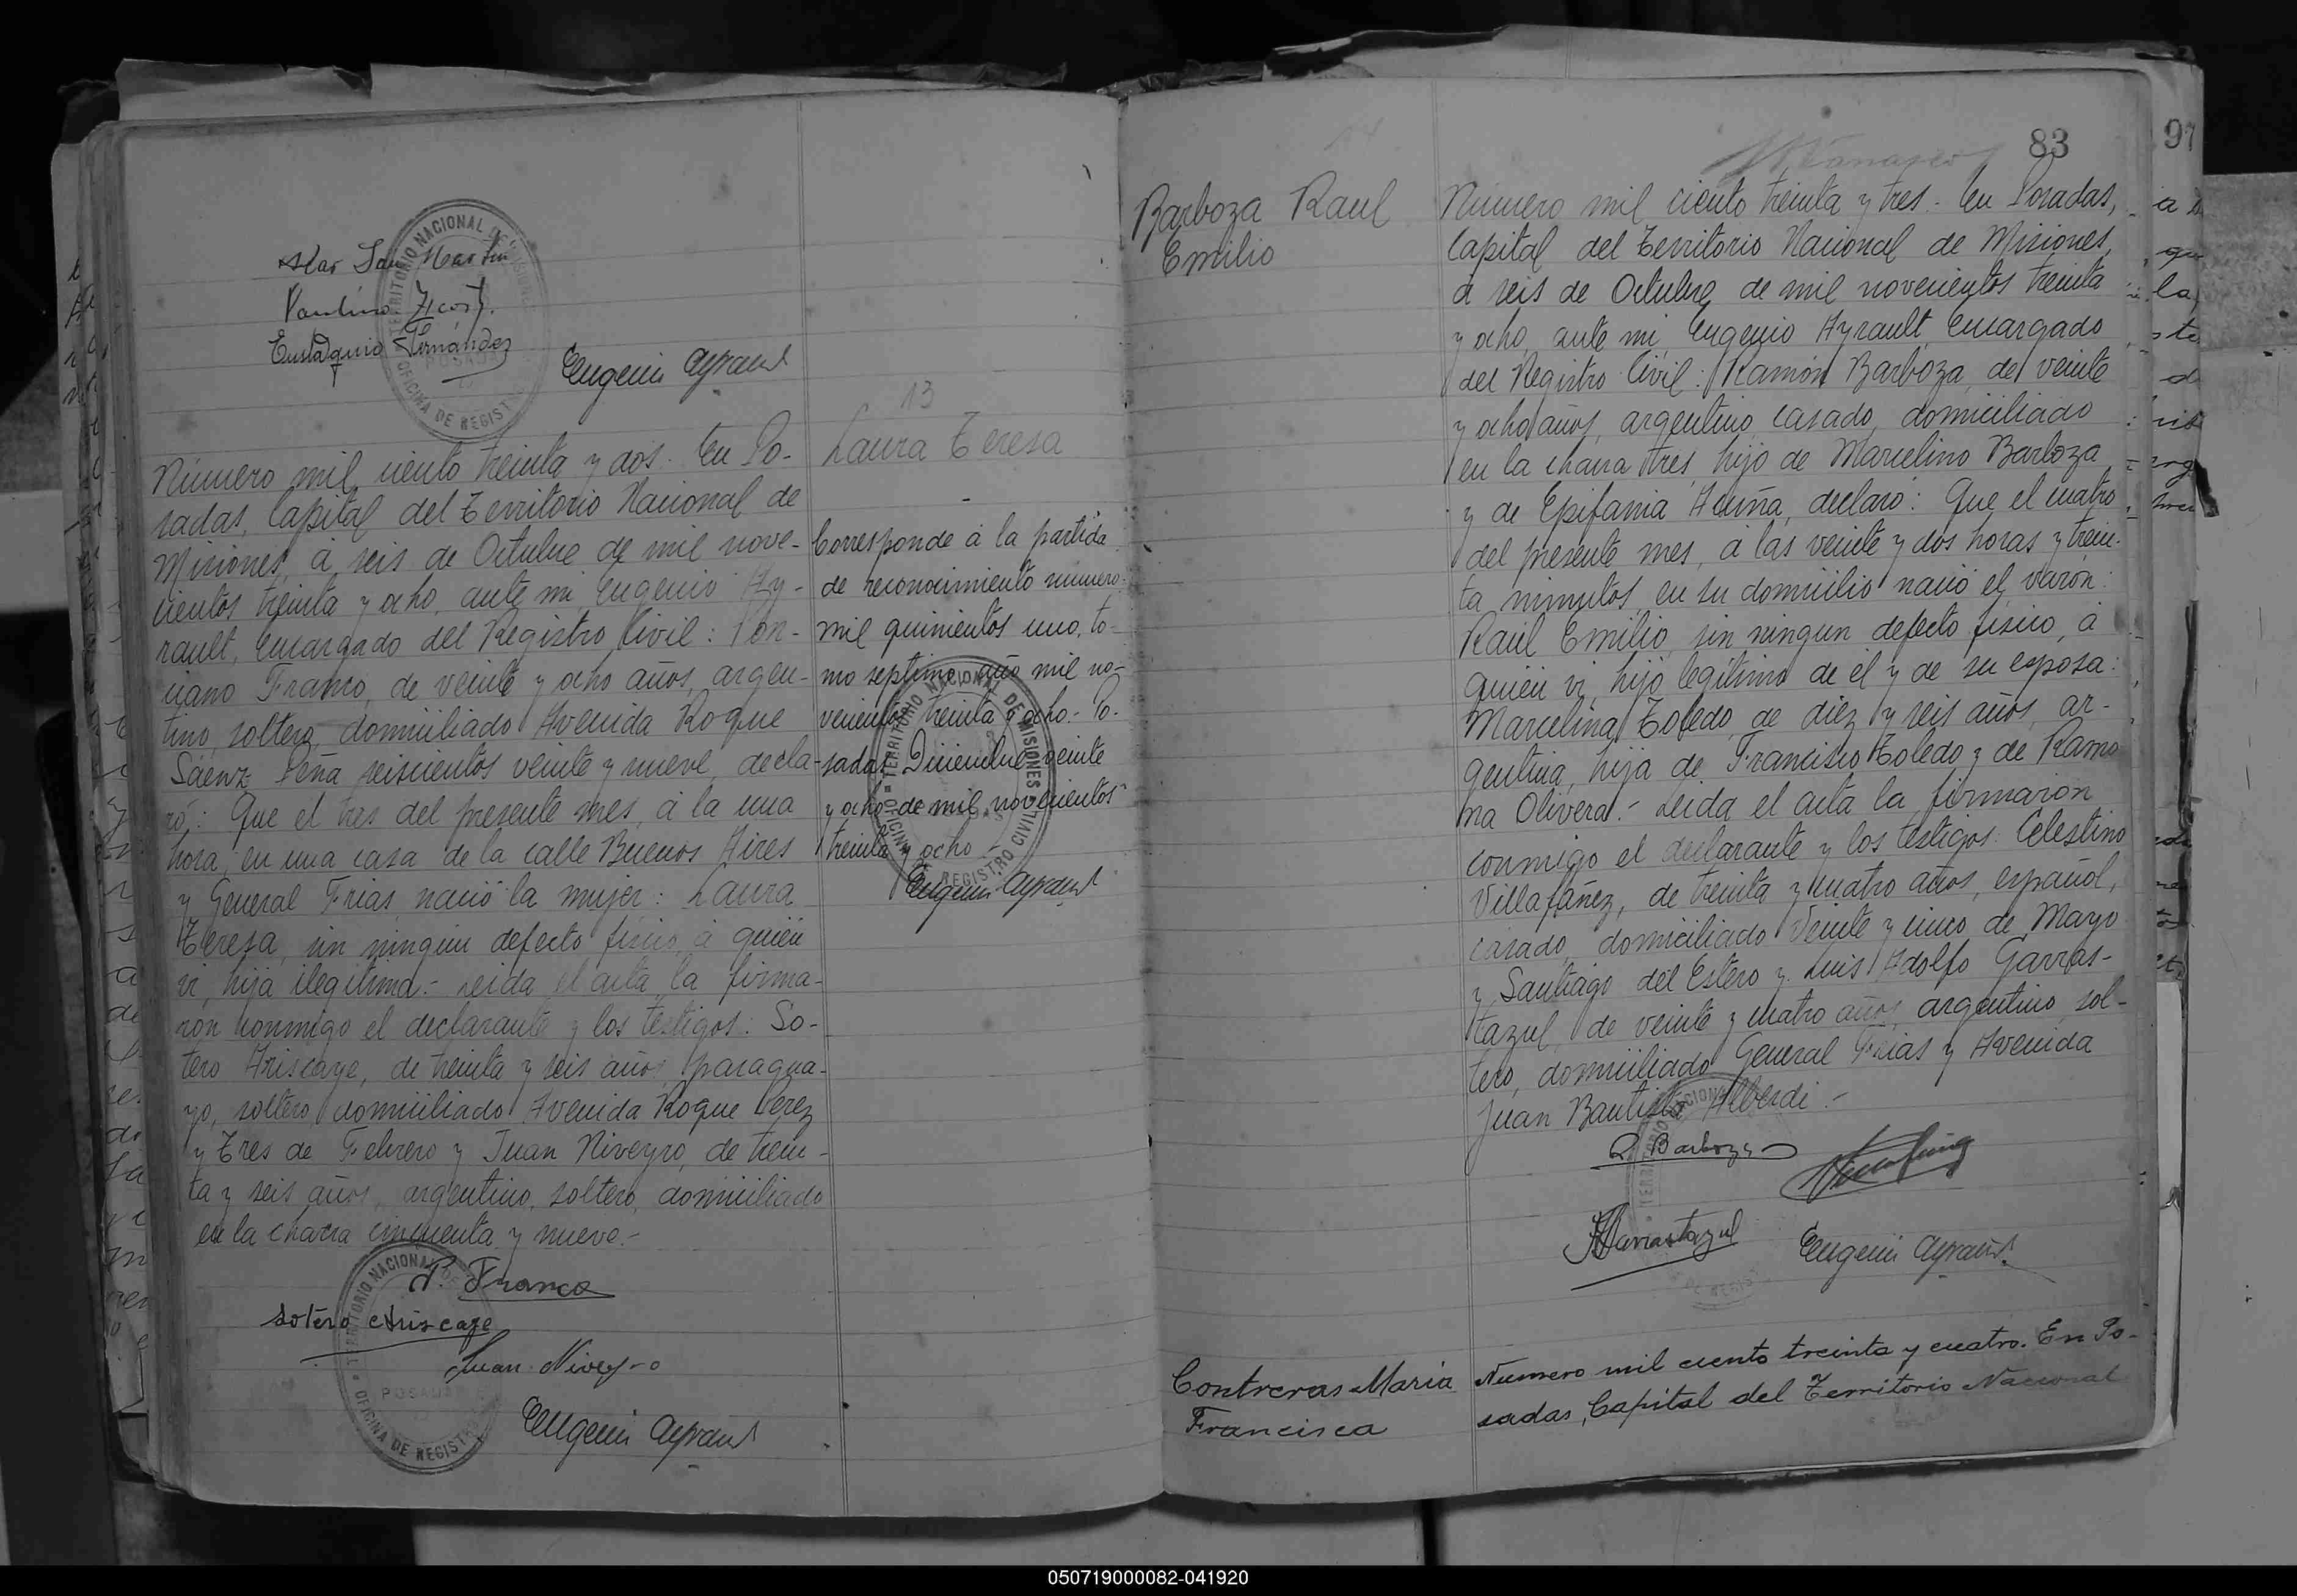 San Martin
Paulino Acost.
Eustaquio Fernández
Eugenio Ayrault
TERRITORIO NACIONAL DE MISIONES
OFICINA DE REGISTRO
13
Laura Teresa
Número mil ciento treinta y dos. En Po-
sadas, Capital del Territorio Nacional de
Misiones, á seis de Octubre de mil nove-
cientos treinta y ocho, ante mi, Eugenio Ay-
rault, Encargado del Registro Civil: Pon-
ciano Franco, de veinte y ocho años, argen-
tino, soltero, domiciliado Avenida Roque
Sáenz Peña seiscientos veinte y nueve, decla-
ró: Que el tres del presente mes, á la una
hora, en una casa de la calle Buenos Aires
y General Frias, nació la mujer: Laura
Teresa, sin ningún defecto físico, á quien
vi, hija ilegítima.- Leida el acta la firma-
ron conmigo el declarante y los testigos: So-
tero Ariscaye, de treinta y seis años, paragua-
yo, soltero, domiciliado Avenida Roque Perez
y Tres de Febrero y Juan Niveyro, de trein-
ta y seis años, argentino, soltero, domiciliado
en la chacra cincuenta y nueve.-
P. Franco
Sotero Ariscaye
Juan Niveyro
Eugenio Ayrault
TERRITORIO NACIONAL DE
POSADAS
OFICINA DE REGISTRO
Corresponde á la partida
de reconocimiento número
mil quinientos uno, to-
mo septimo, año mil no-
vecientos treinta y ocho.- Po-
sadas, Diciembre veinte
y ocho de mil novecientos
treinta y ocho.-
Eugenio Ayrault
TERRITORIO NACIONAL DE MISIONES
OFICINA DE REGISTRO CIVIL
83
97
Barboza Raul
Emilio
Número mil ciento treinta y tres.- En Posadas,
Capital del Territorio Nacional de Misiones,
á seis de Octubre de mil novecientos treinta
y ocho, ante mi, Eugenio Ayrault, Encargado
del Registro Civil: Ramón Barboza, de veinte
y ocho años, argentino, casado, domiciliado
en la chacra tres, hijo de Marcelino Barboza
y de Epifania Acuña, declaró: Que el cuatro
del presente mes, á las veinte y dos horas y trein-
ta minutos, en su domicilio nació el varón:
Raúl Emilio, sin ningun defecto físico, á
quien vi, hijo legítimo de él y de su esposa:
Marcelina Toledo, de diez y seis años, ar-
gentina, hija de Francisco Toledo y de Ramo
na Olivera.- Leida el acta la firmaron
conmigo el declarante y los testigos: Celestino
Villafáñez, de treinta y cuatro años, español,
casado, domiciliado Veinte y cinco de Mayo
y Santiago del Estero y Luis Adolfo Garras-
tazul, de veinte y cuatro años, argentino, sol-
tero, domiciliado General Frias y Avenida
Juan Bautista Alberdi.-
R. Barboza
Garrastazul
Eugenio Ayrault
Contreras María
Francisca
Número mil ciento treinta y cuatro. En Po-
sadas, Capital del Territorio Nacional
050719000082-041920